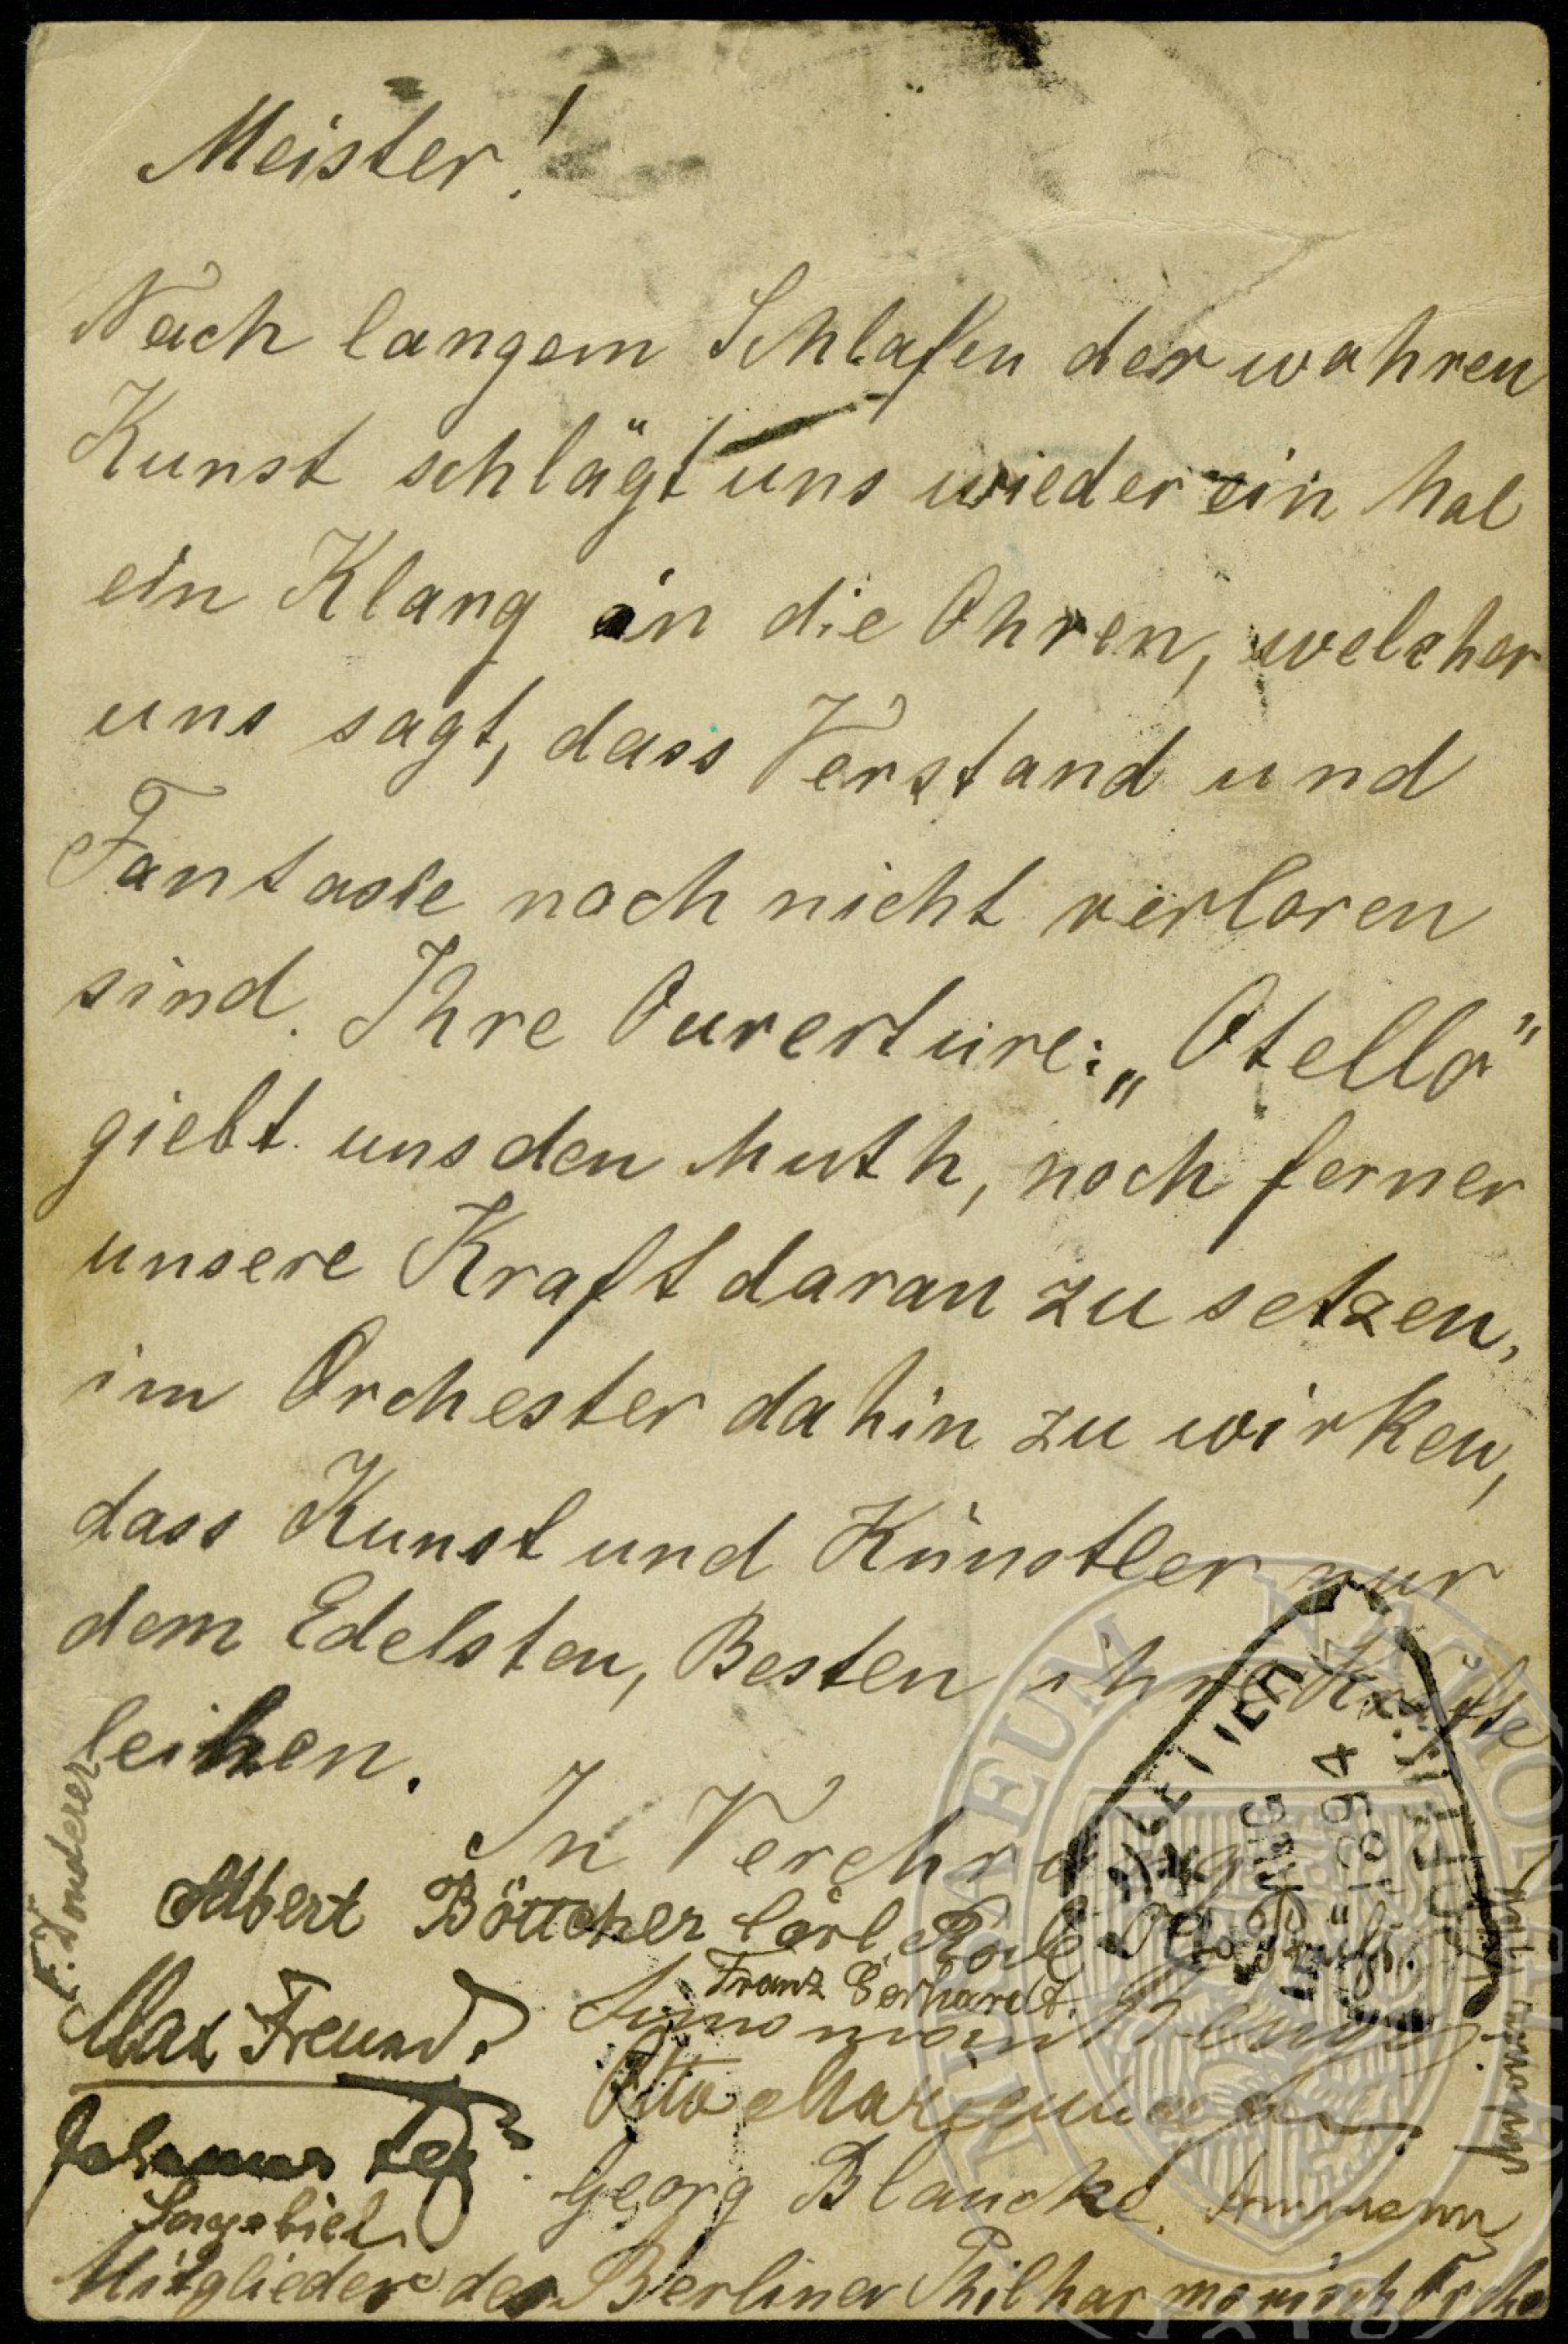 Meister!
Nach langem Schlafen der wahren
Kunst schlägt uns wieder ein Mal
ein Klang in die Ohren, welcher
uns sagt, dass Verstand und
Fantasie noch nicht verloren
sind. Ihre Ouverture: „Otello"
giebt uns den Muth, noch ferner
unsere Kraft daran zu setzen,
im Orchester dahin zu wirken,
dass Kunst und Künstler nur
dem Edelsten, Besten ihre Kräfte
leihen.
In Verehrung
Albert Böttcher Carl
Franz Gerhardt.
Max Freund.
Otto
Johannes
Georg Blancke. Ammann
Sorgebiel
Mitglieder des Berliner Philharmonisch Orche
F. Donderer
AUG
1894
MUSEUM NATIONAL
1818